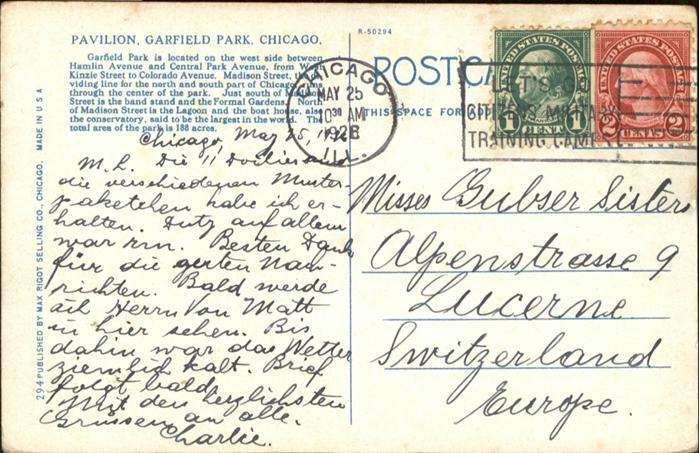 R-50294
PAVILION, GARFIELD PARK, CHICAGO.
Garfield Park is located on the west side between
Hamlin Avenue and Central Park Avenue, from West
Kinzie Street to Colorado Avenue. Madison Street, the
viding line for the north and south part of Chicago
through the center of the park. Just south of Madison
Street is the band stand and the Formal Gardens. North
of Madison Street is the Lagoon and the boat house, also
the conservatory, said to be the largest in the world. The
total area of the park is 188 acres.
POSTCA
THIS SPACE FOR
CHICAGO
MAY 25
10 30 AM
1928
ILL.
LET'S GO
CITIZENS MILITARY
TRAINING CAMP
UNITED STATES POSTAGE
1 CENT 1
UNITED STATES POSTAGE
2 CENTS 2
MADE IN U S A
294 PUBLISHED BY MAX RIGOT SELLING CO., CHICAGO.
Chicago, May 25, 1928
M. L. Die 11 Doilies und
die verschiedenen Muster-
paketchen habe ich er-
halten. Dutz auf allem
war rm. Besten Dank
für die guten Nach-
richten. Bald werde
ich Herrn Von Matt
in hier sehen. Bis
dahin war das Wetter
ziemlich kalt. Brief
folgt bald.
Mit den herzlichsten
Grüssen an alle.
Charlie.
Misses Gubser Sisters
Alpenstrasse 9
Lucerne
Switzerland
Europe.